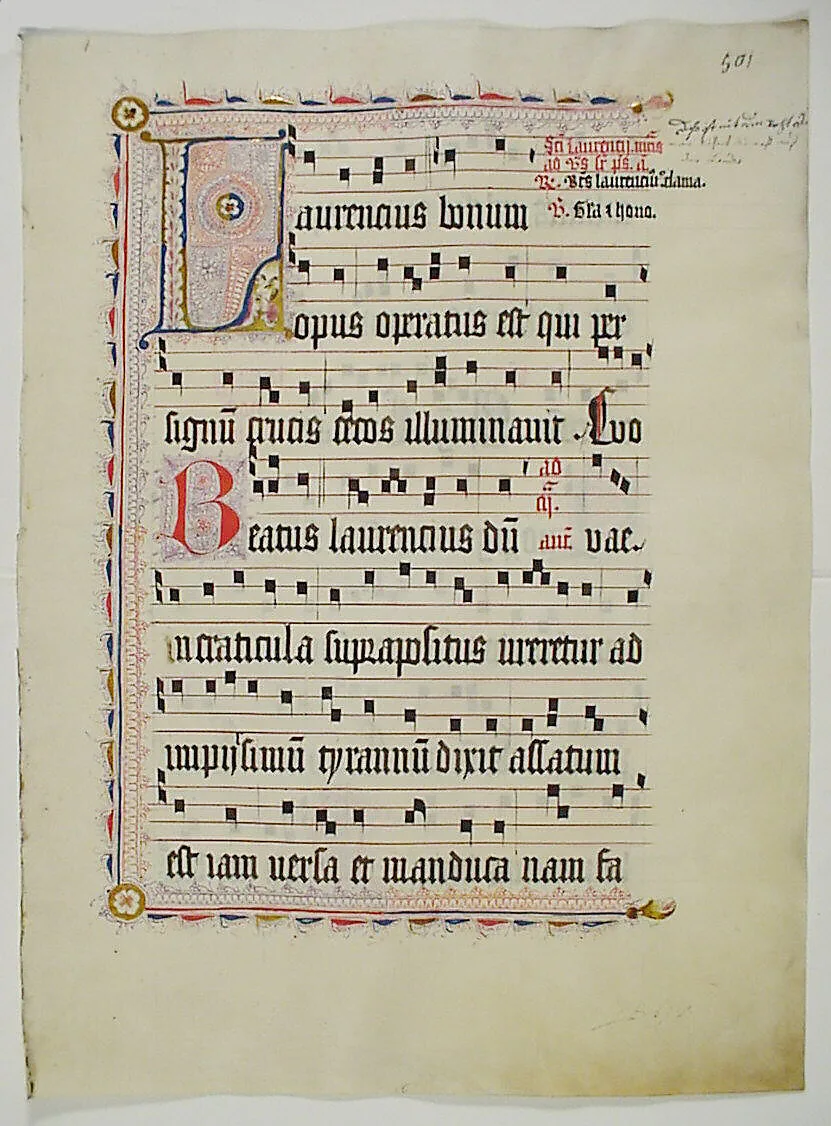 501
Sci laurencij mris
ad vs sr ps. a.
R. Bts laurenciu clama.
V. Gla i hono.
Laurencius bonum
opus operatus est qui per
signū crucis cecos illuminavit Evo
Beatus laurencius dū
ad
cij.
ant vae
in craticula suprapositus ureretur ad
impijsimū tyrannū dixit assatum
est iam versa et manduca nam fa